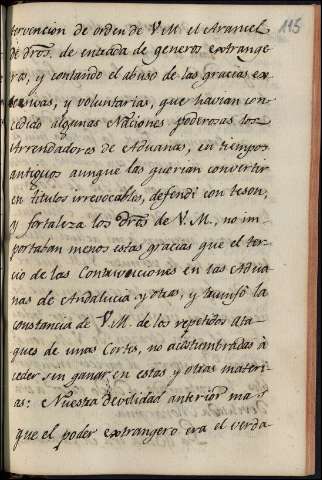 115
tervencion de orden de V.M. el Arancel
de dros. de entrada de generos extrange
ros, y contando el abuso de las gracias ex
cesivas, y voluntarias, que havian con
cedido algunas Naciones poderosas los
Arrendadores de Aduanas, en tiempos
antiguos aunque las querian convertir
en titulos irrevocables, defendi con teson,
y fortaleza los dros. de V.M., no im-
portaban menos estas gracias que el ter-
cio de las Contribuciones en las Adua
nas de Andalucia y otras, y triunfó la
constancia de V.M. de los repetidos ata-
ques de unas Cortes, no acostumbradas à
ceder sin ganar en estas y otras materi-
as: Nuestra devilidad anterior mas
que el poder extrangero era el verda-